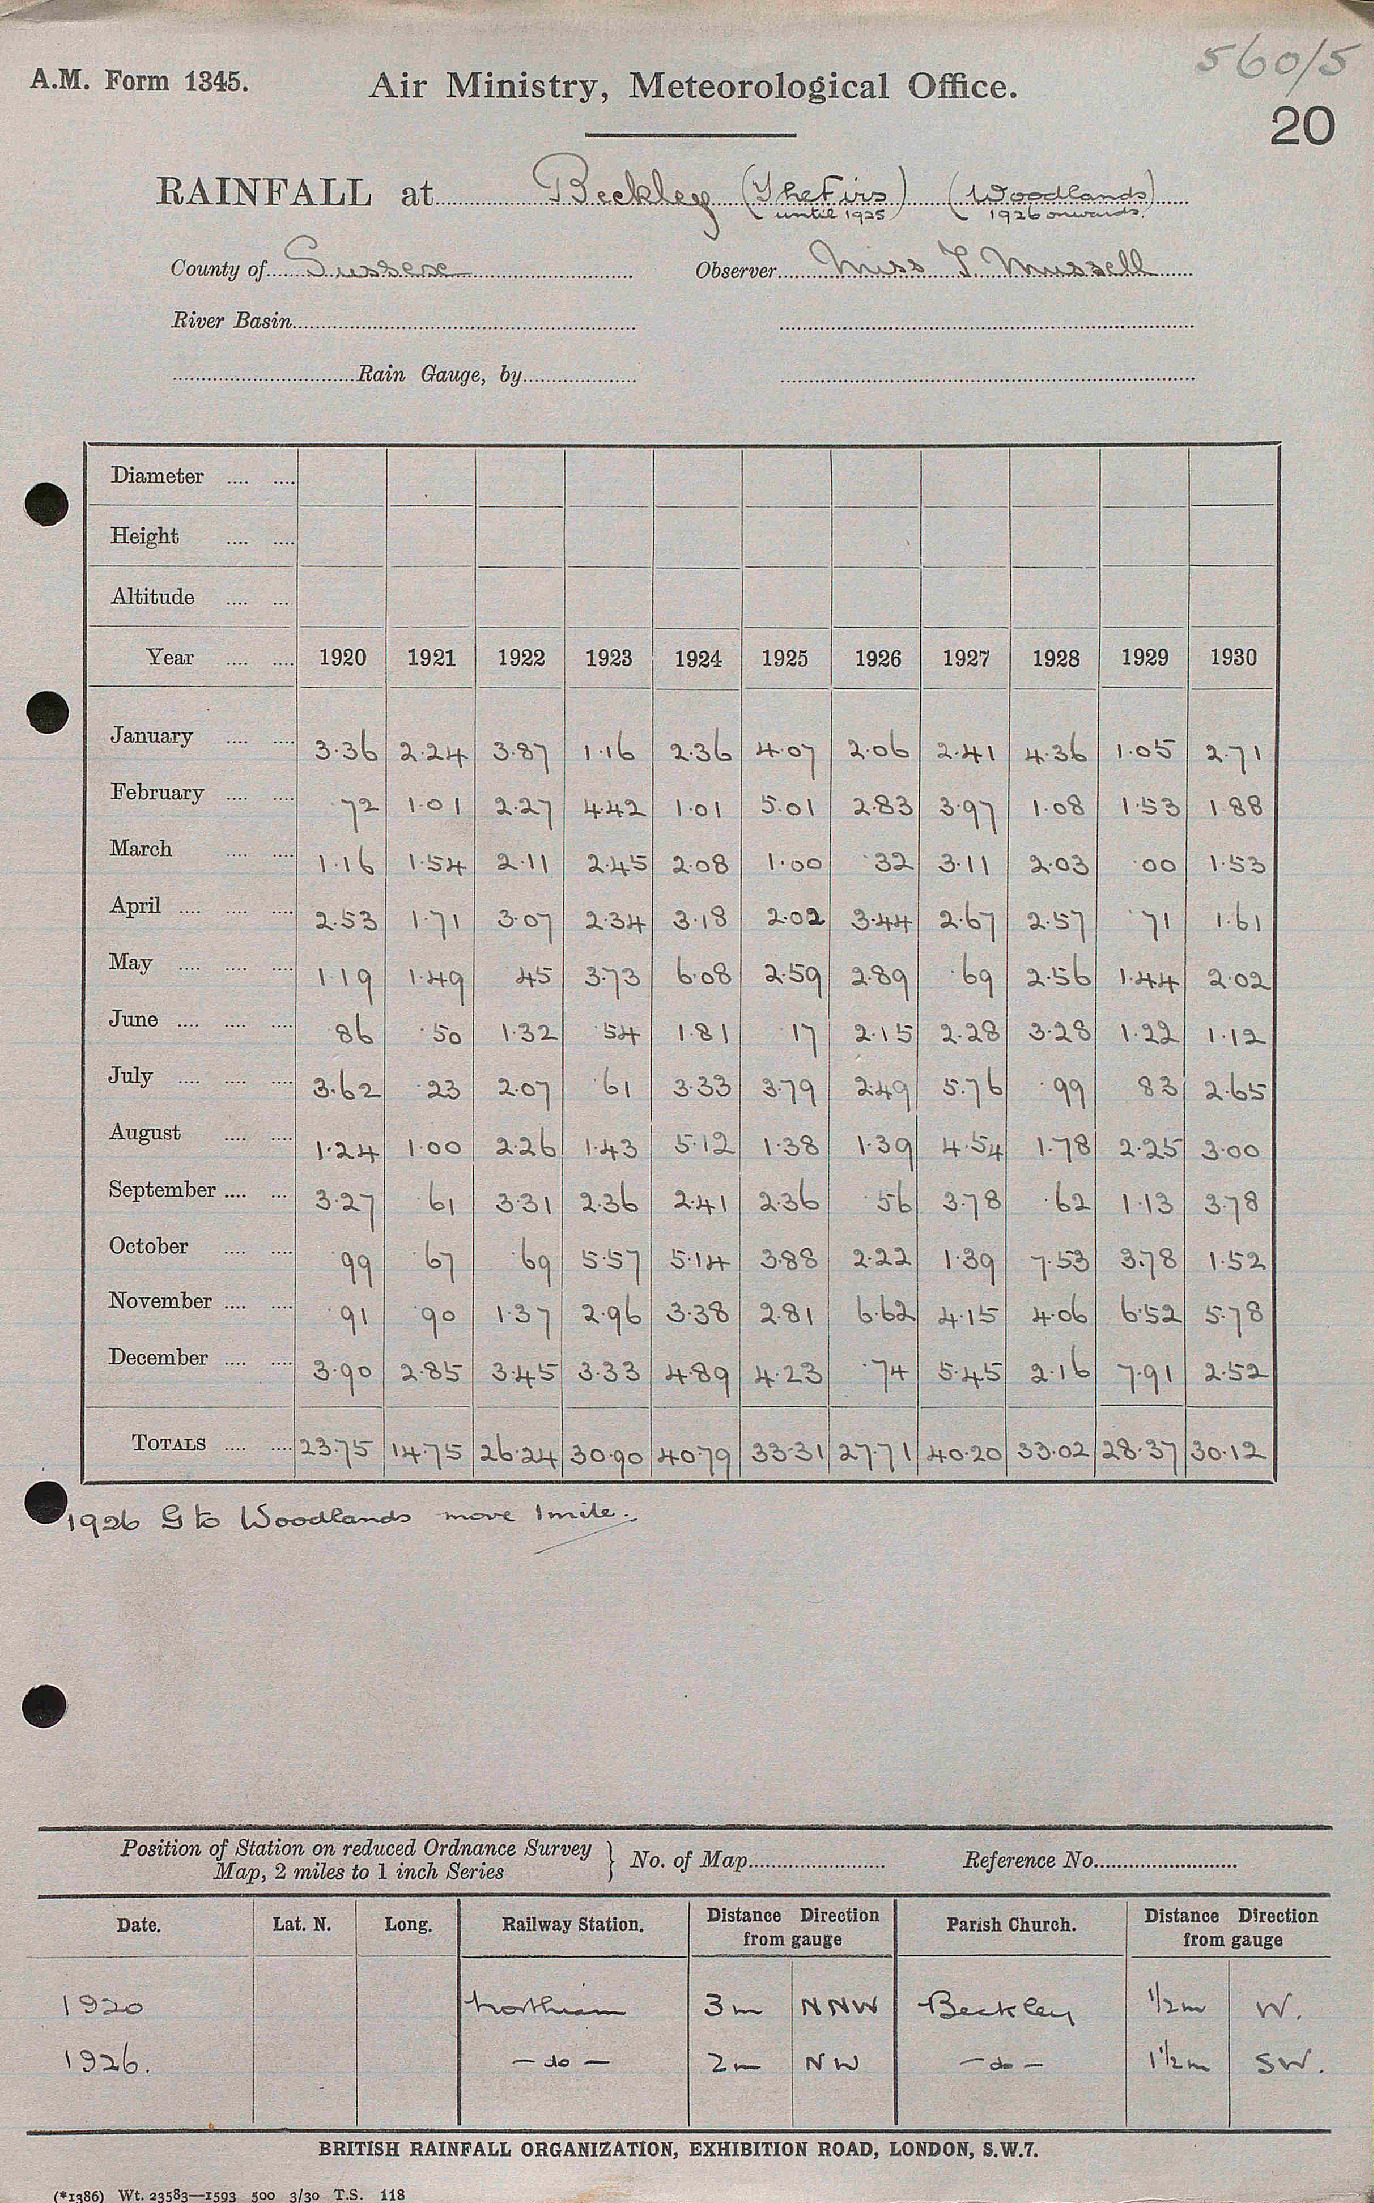 560/5
A.M. Form 1345. Air Ministry, Meteorological Office.
20
RAINFALL at Beckley (The Firs) (Woodlands)
until 1925 1926 onwards.
County of Sussex Observer Miss T. Mussell
River Basin
Rain Gauge, by
Diameter
Height
Altitude
Year 1920 1921 1922 1923 1924 1925 1926 1927 1928 1929 1930
January 3.36 2.24 3.87 1.16 2.36 4.07 2.06 2.41 4.36 1.05 2.71
February .72 1.01 2.27 4.42 1.01 5.01 2.83 3.97 1.08 1.53 1.88
March 1.16 1.54 2.11 2.45 2.08 1.00 .32 3.11 2.03 .00 1.53
April 2.53 1.71 3.07 2.34 3.18 2.02 3.44 2.67 2.57 .71 1.61
May 1.19 1.49 .45 3.73 6.08 2.59 2.89 .69 2.56 1.44 2.02
June .86 .50 1.32 .54 1.81 .17 2.15 2.28 3.28 1.22 1.12
July 3.62 .23 2.07 .61 3.33 3.79 2.49 5.76 .99 .83 2.65
August 1.24 1.00 2.26 1.43 5.12 1.38 1.39 4.54 1.78 2.25 3.00
September 3.27 .61 3.31 2.36 2.41 2.36 .56 3.78 .62 1.13 3.78
October .99 .67 .69 5.57 5.14 3.88 2.22 1.39 7.53 3.78 1.52
November .91 .90 1.37 2.96 3.38 2.81 6.62 4.15 4.06 6.52 5.78
December 3.90 2.85 3.45 3.33 4.89 4.23 .74 5.45 2.16 7.91 2.52
TOTALS 23.75 14.75 26.24 30.90 40.79 33.31 27.71 40.20 33.02 28.37 30.12
1926 G to Woodlands move 1 mile.
Position of Station on reduced Ordnance Survey
Map, 2 miles to 1 inch Series } No. of Map Reference No.
Date. Lat. N. Long. Railway Station. Distance Direction from gauge Parish Church. Distance Direction from gauge
1920 Northiam 3m NNW Beckley 1/2m W.
1926. - do - 2m NW - do - 1 1/2m SW.
BRITISH RAINFALL ORGANIZATION, EXHIBITION ROAD, LONDON, S.W.7.
(*1386) Wt. 23583—1593 500 3/30 T.S. 118